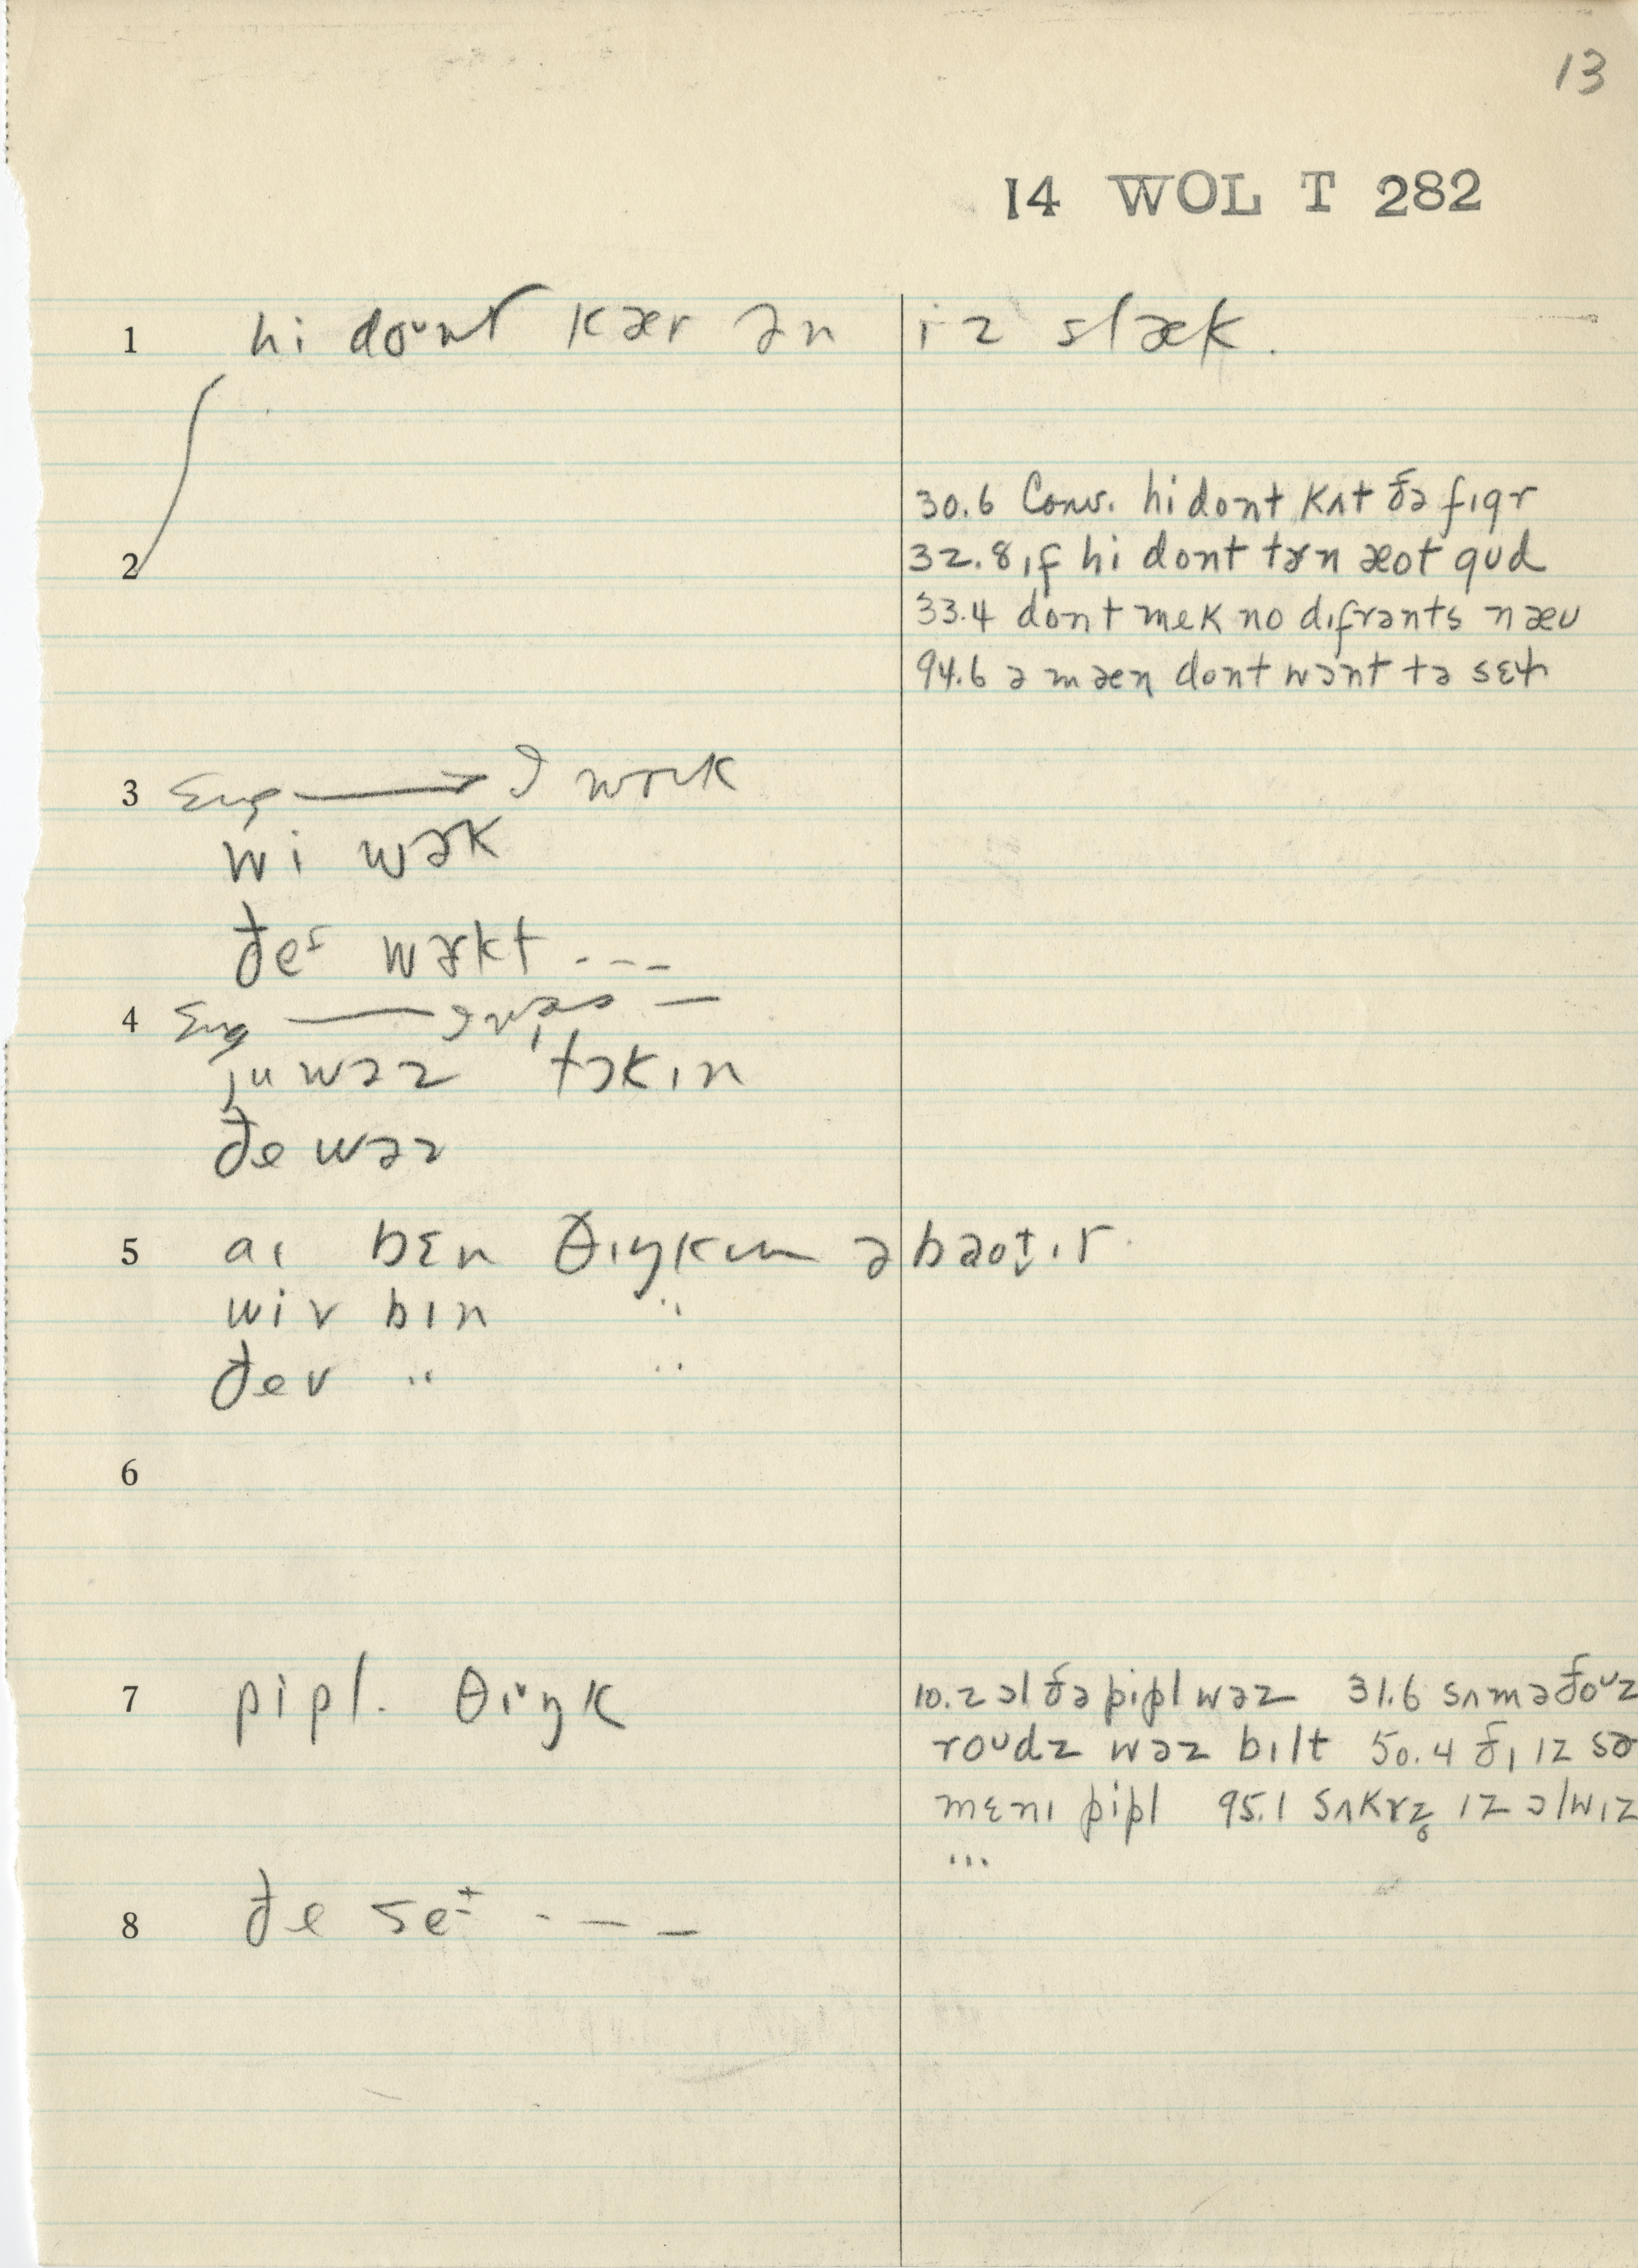 13
14 WOL T 282
1 hi doᴜnt kær ən iz slæk.
30.6 Conv. hi dont kʌt ðə fɪgr
2 32.8 ɪf hi dont tɚn æot gud
33.4 dont mek no dɪfrənts næu
94.6 ə mæn dont wɔnt tə
3 Eng → I work
wi wɚk
ðeᶦ wɚkt ---
4 Eng — I was —
ju wəz 'tɔkɪn
ðe wəz
5 aɪ bɛn θɪŋkɪn əbaot̬ ɪt
wiv bɪn "
ðev " "
6
7 pipl. θiŋk 10.2 ɔl ðə pipl wəz 31.6 sʌm ə ðoᴜz
roᴜdz wəz bɪlt 50.4 ðɪ ɪz sə
mɛnɪ pipl 95.1 sʌkɚz̥ ɪz ɔlwɪz
...
8 ðe se ---